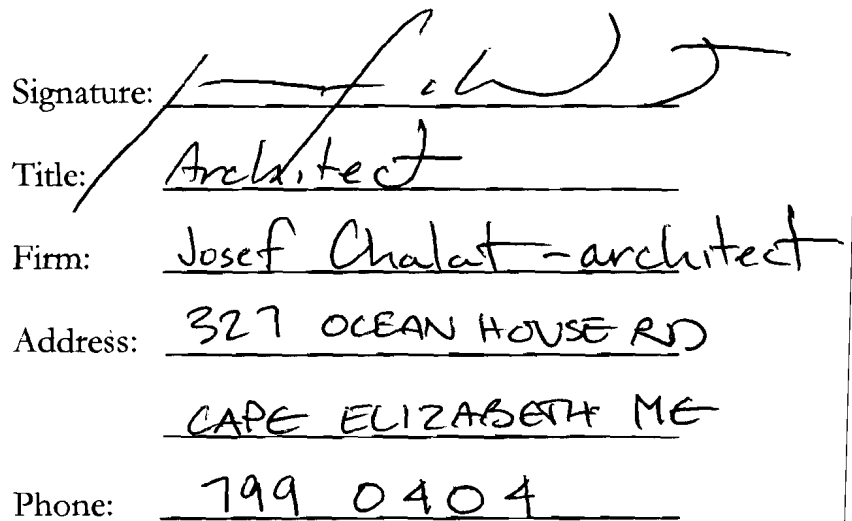 Signature:
Title: Architect
Firm: Josef Chalat - architect
Address: 327 OCEAN HOUSE RD
CAPE ELIZABETH ME
Phone: 799 0404